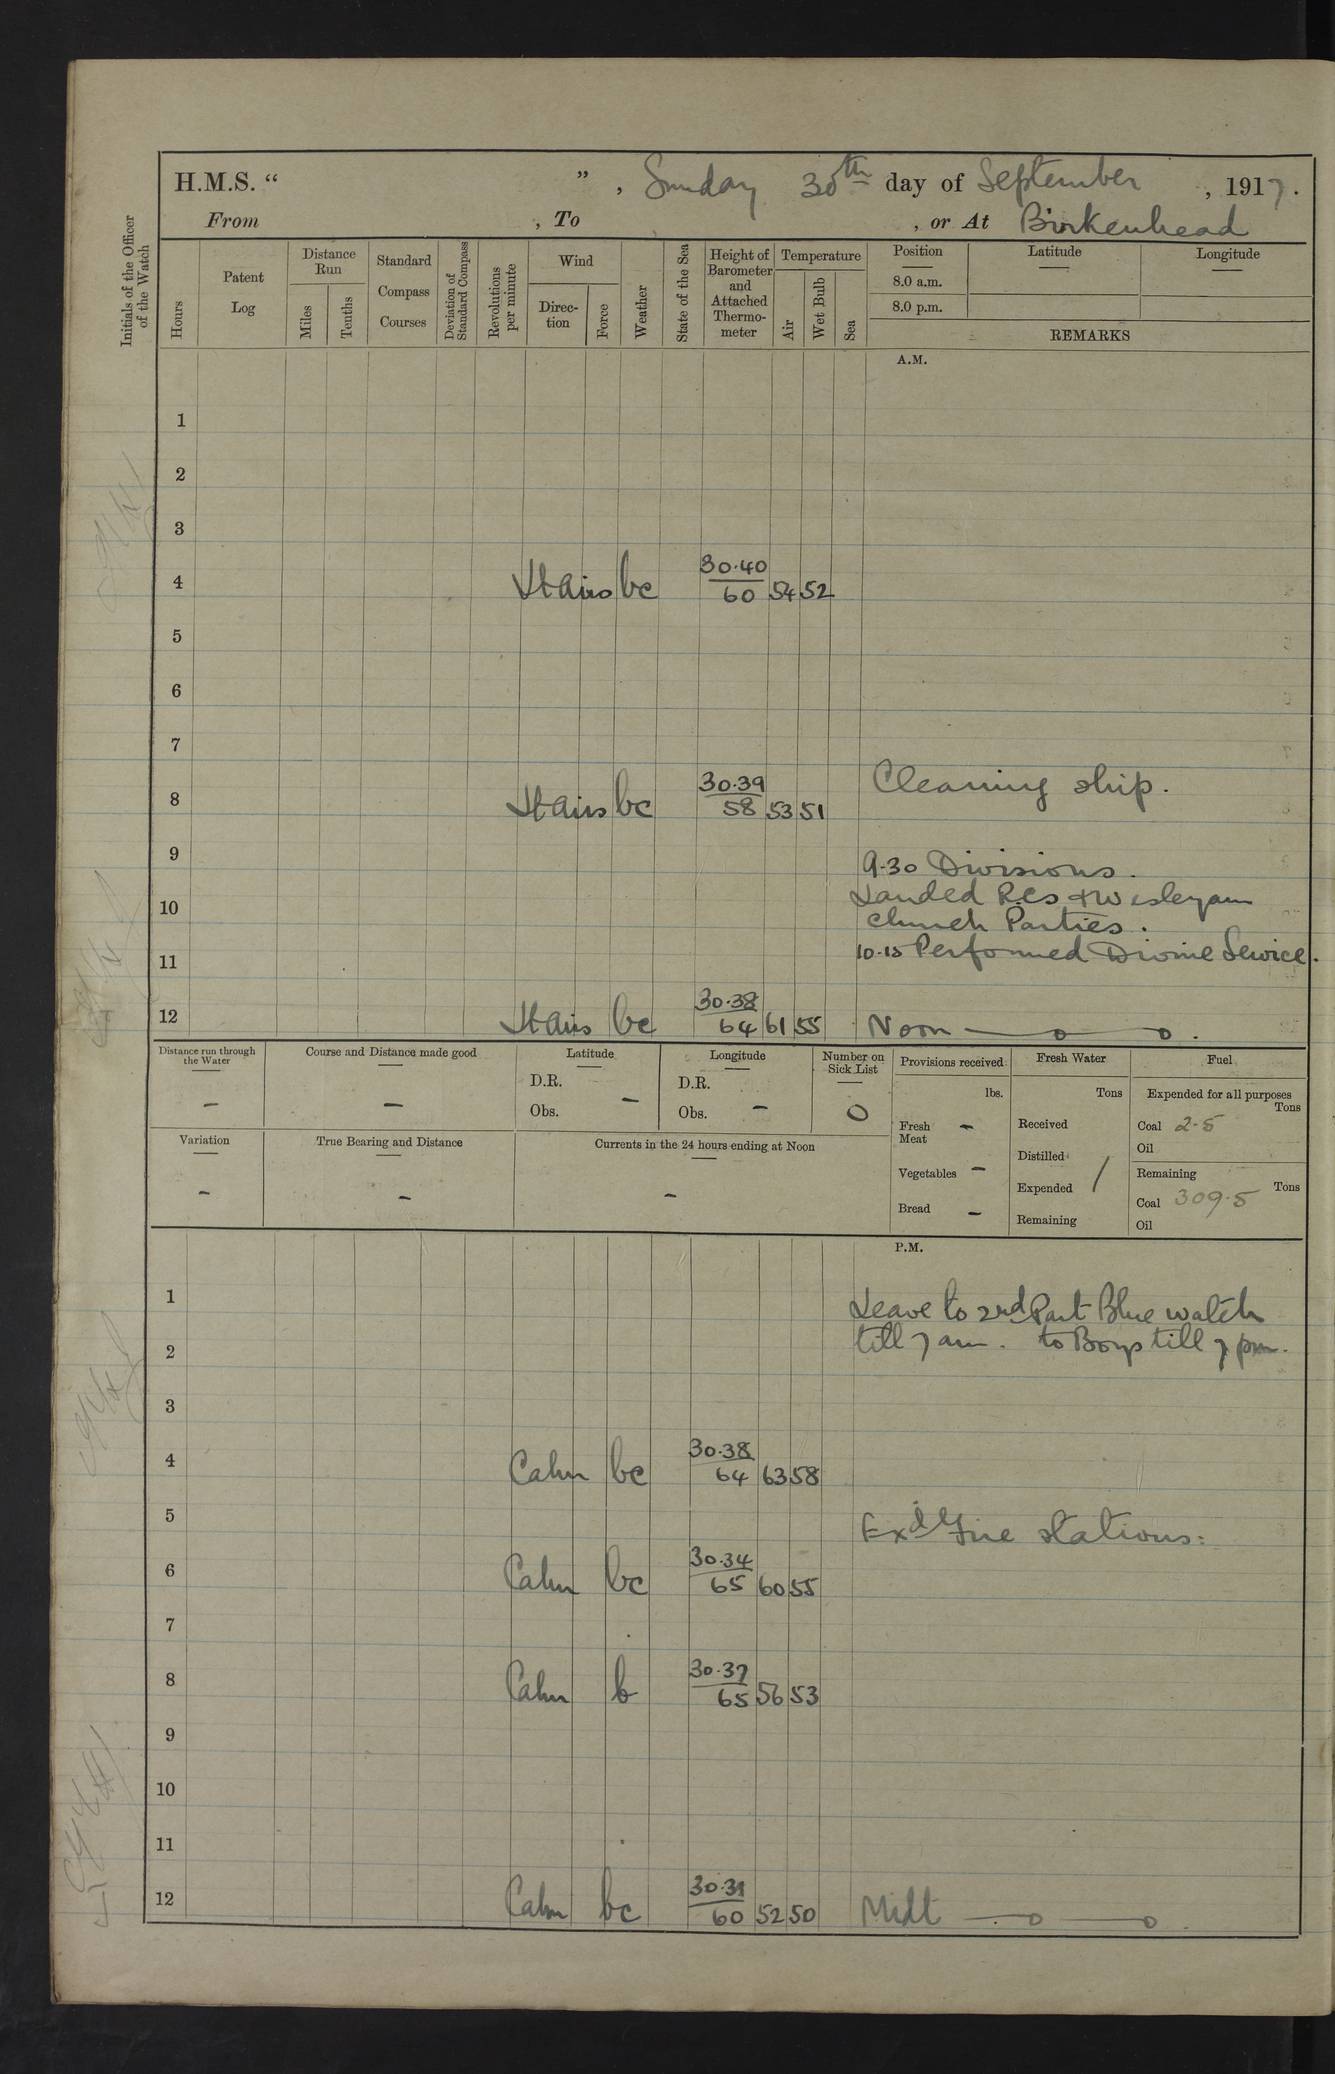 H.M.S. “ ” , Sunday 30th day of September , 1917.
From , To , or At Birkenhead
Initials of the Officer of the Watch
Hours
Patent Log
Distance Run
Miles
Tenths
Standard Compass Courses
Deviation of Standard Compass
Revolutions per minute
Wind
Direction
Force
Weather
State of the Sea
Height of Barometer and Attached Thermometer
Temperature
Air
Wet Bulb
Sea
Position Latitude Longitude
8.0 a.m.
8.0 p.m.
REMARKS
A.M.
1
2
3
4 Lt airs bc 30.40 60 54 52
5
6
7
Cleaning ship.
8 Lt airs bc 30.39 58 53 51
9
9.30 Divisions.
Landed R.Cs & Wesleyan
10
Church Parties.
10.15 Performed Divine Service.
11
12 Lt airs bc 30.38 64 61 55 Noon — o — o .
Distance run through the Water
–
Course and Distance made good
–
Latitude
D.R.
Obs. –
Longitude
D.R.
Obs. –
Number on Sick List
0
Provisions received
lbs.
Fresh Meat –
Vegetables –
Bread –
Fresh Water
Tons
Received
Distilled
Expended /
Remaining
Fuel
Expended for all purposes
Tons
Coal 2.5
Oil
Remaining
Tons
Coal 309.5
Oil
Variation
–
True Bearing and Distance
–
Currents in the 24 hours ending at Noon
–
P.M.
1
Leave to 2nd Part Blue watch
2 till 7 am. to Boys till 7 pm.
3
4 Calm bc 30.38 64 63 58
5
Exd Fire stations:
6 Calm bc 30.34 65 60 55
7
8 Calm b 30.37 65 56 53
9
10
11
12 Calm bc 30.31 60 52 50 Midt — o — o .